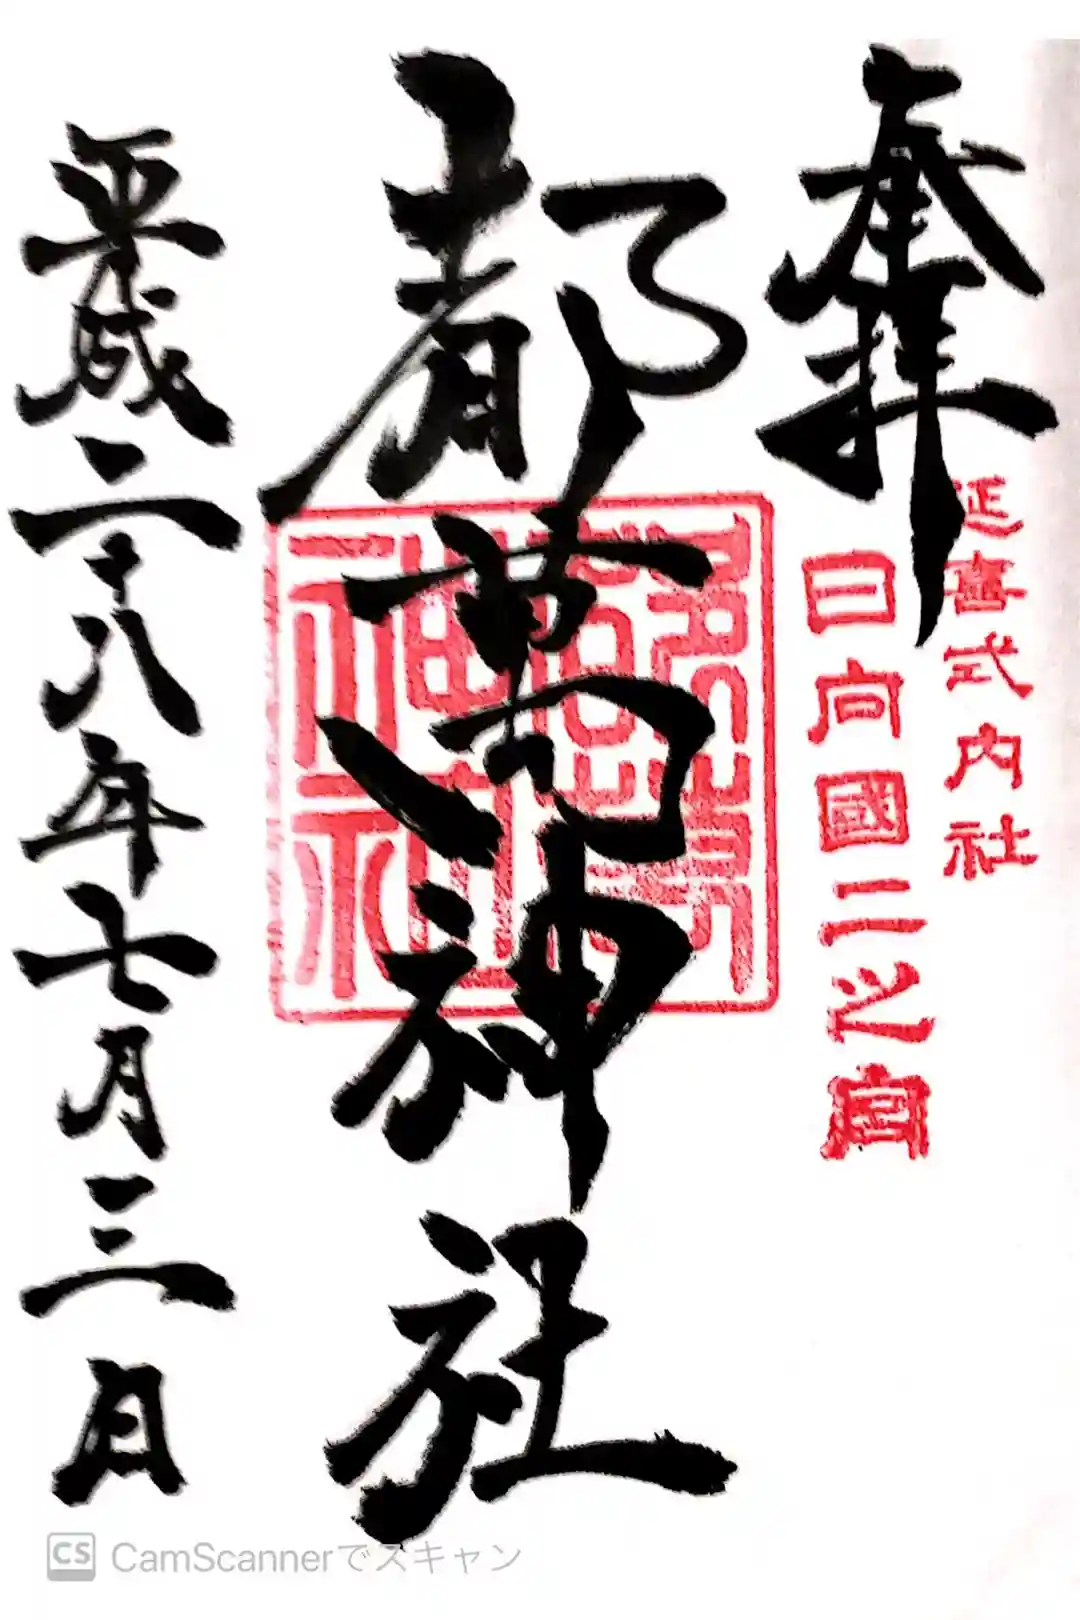 奉拝
延喜式内社
日向國二之宮
都萬神社
平成二十八年七月三日
CS CamScannerでスキャン